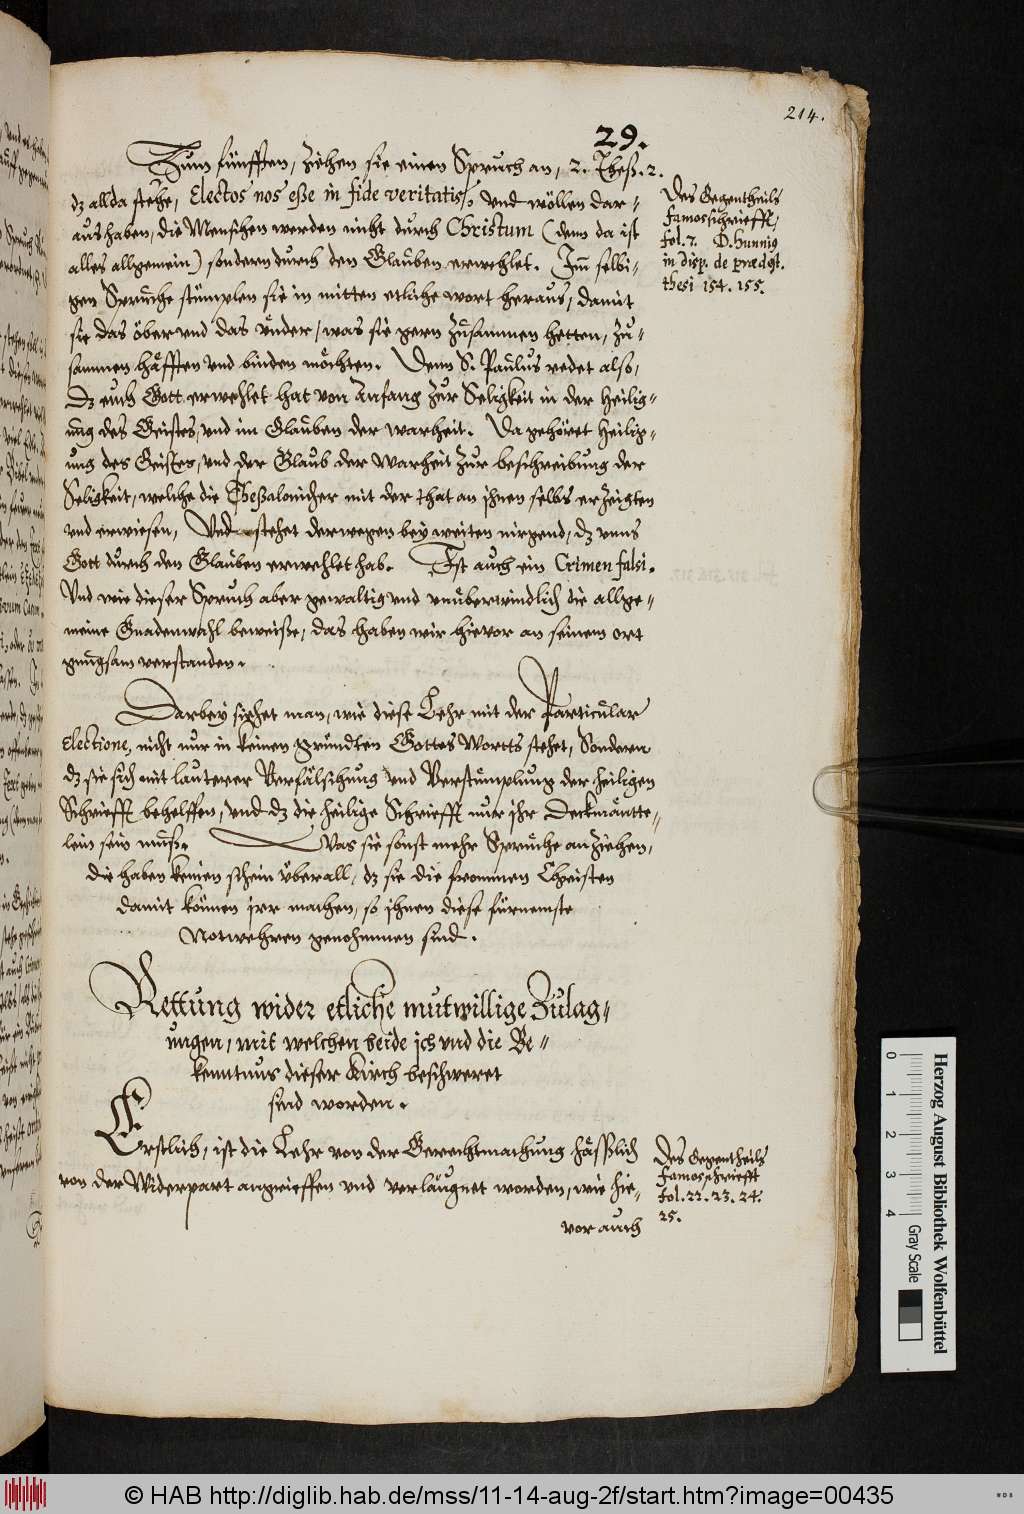 214.
29.
Zum fünfften, ziehen sie einen Spruch an, 2. Theß. 2.
dz allda stehe, Electos nos eße in fide veritatis, und wöllen dar-
aus haben, die Menschen werden nicht durch Christum (denn da ist
alles allgemein) sondern durch den Glauben erwehlet. Im selbi-
gen Spruche stümplen sie in mitten etliche wort heraus, damit
sie das öber und das under, was sie gern zusammen hetten, zu-
sammen häfften und binden möchten. Denn S. Paulus redet also,
Dz euch Gott erwehlet hat von Anfang zur Seligkeit in der Heilig-
ung des Geistes, und im Glauben der warheit. Da gehöret Heilig-
ung des Geistes, und der Glaub der Warheit zur beschreibung der
Seligkeit, welche die Theßalonicher mit der that an ihnen selbs erzeigten
und erwiesen, Und stehet derwegen bey weiten nirgend, dz unns
Gott durch den Glauben erwehlet hab. Ist auch ein Crimen falsi.
Und wie dieser Spruch aber gewaltig und unüberwindlich die allge-
meine Gnadenwahl beweiße, das haben wir hievor an seinem ort
gnugsam verstanden.
Darbey siehet man, wie diese Lehr mit der Particular
Electione, nicht nur in keinen grundten Gottes Wortts stehet, Sonderen
dz sie sich mit lauterer Verfälschung und Verstümplung der heiligen
Schriefft behelffen, und dz die heilige Schriefft nur ihr Deckmäntte-
lein sein muß. Was sie sonst mehr Spruche anziehen,
die haben keinen schein überall, dz sie die frommen Christen
damit können irr machen, so ihnen diese fürnemste
Notwehren genohmmen sind.
Rettung wider etliche mutwillige Zulag-
ungen, mit welchen beide ich und die Be-
kenntnus dieser Kirch beschweret
sind worden.
Erstlich, ist die Lehr von der Gerechtmachung häßlich
von der Widerpart angrieffen und verläugnet worden, wie hie-
vor auch
Des Gegentheils
famosschriefft,
fol. 7. D. Hunnig
in disp. de prædest.
thesi 154. 155.
Des Gegentheils
famosschriefft
fol. 22. 23. 24.
25.
Herzog August Bibliothek Wolfenbüttel
0 1 2 3 4
Gray Scale
© HAB http://diglib.hab.de/mss/11-14-aug-2f/start.htm?image=00435